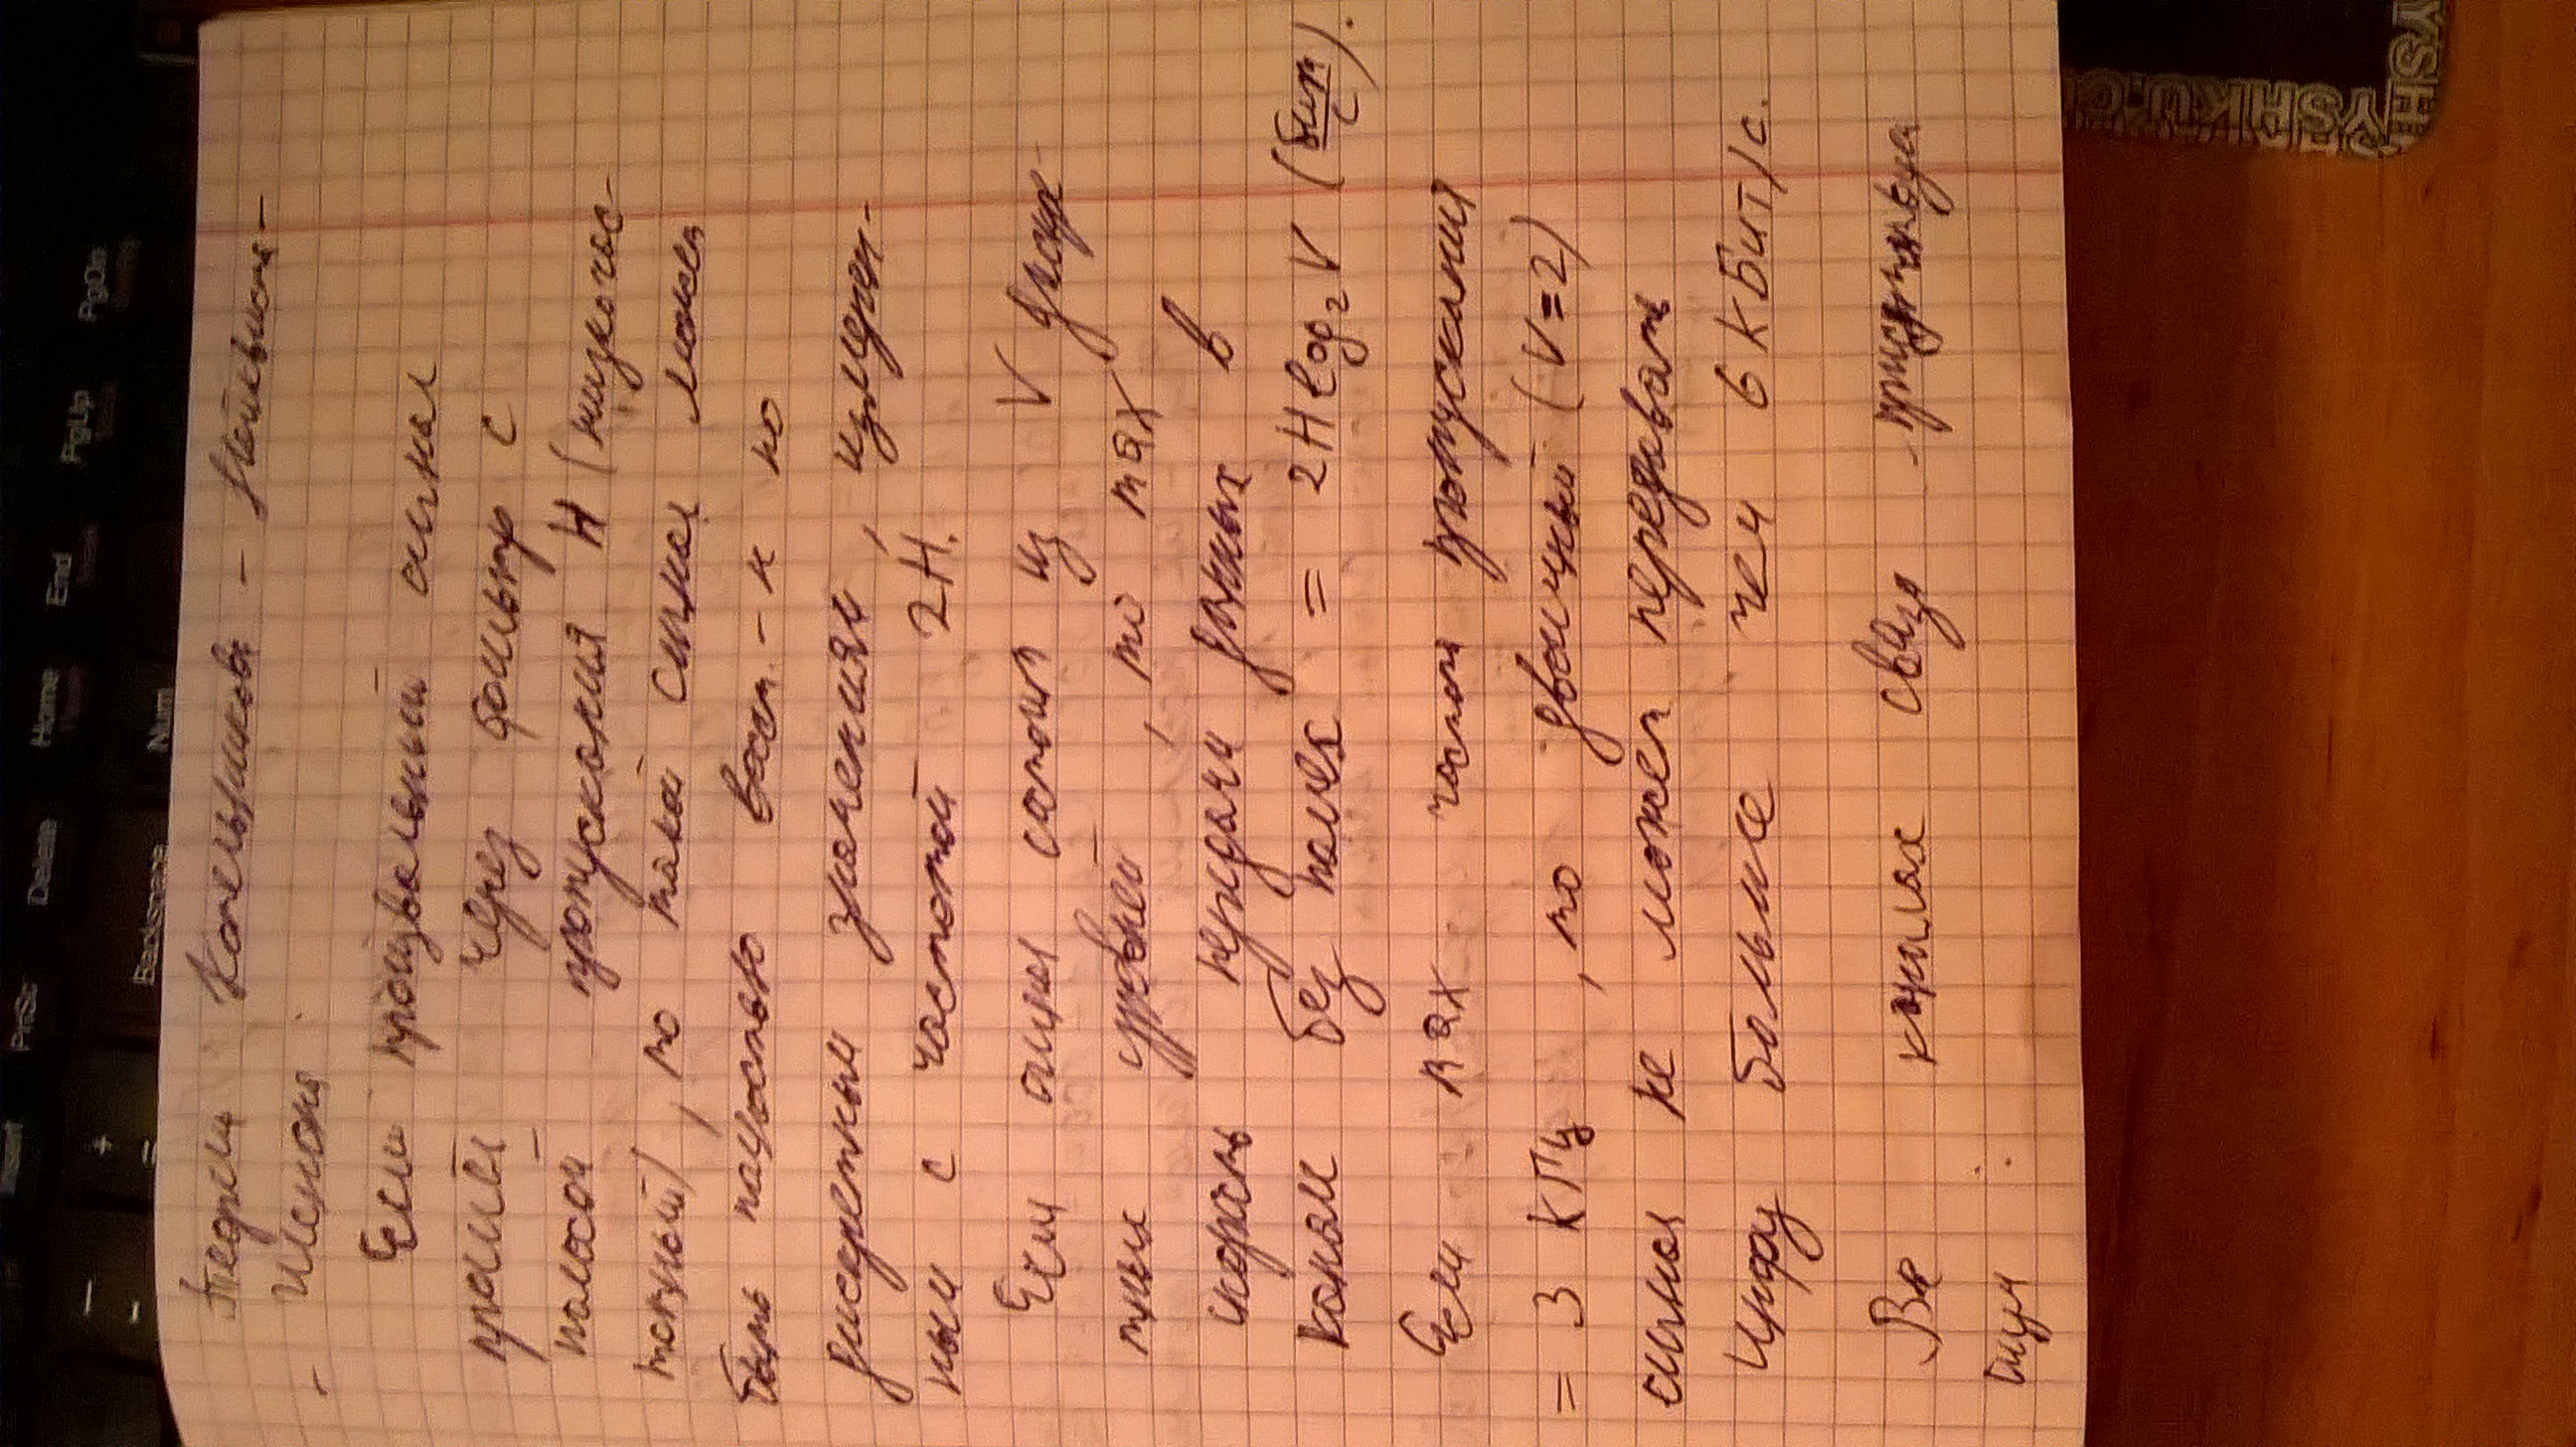 Insert PrtSc Delete Home End PgUp PgDn
Backspace Num
Теорема Котельникова - Найквиста -
- Шенона
Если произвольный сигнал
прошёл через фильтр с
полосой пропускания H (низкочас-
тотный), то такой сигнал может
быть полностью восст.-н по
дискретным значениям, измерен-
ным с частотой 2H.
Если сигнал состоит из V дискре-
тных уровней, то max
скорость передачи данных в
канале без помех = 2H log₂ V (бит/с).
Если max частота пропускания
= 3 КГц, то двоичный (V=2)
сигнал не может передавать
инфу больше чем 6 КБит/с.
Во каналах связи присутствует
шум :